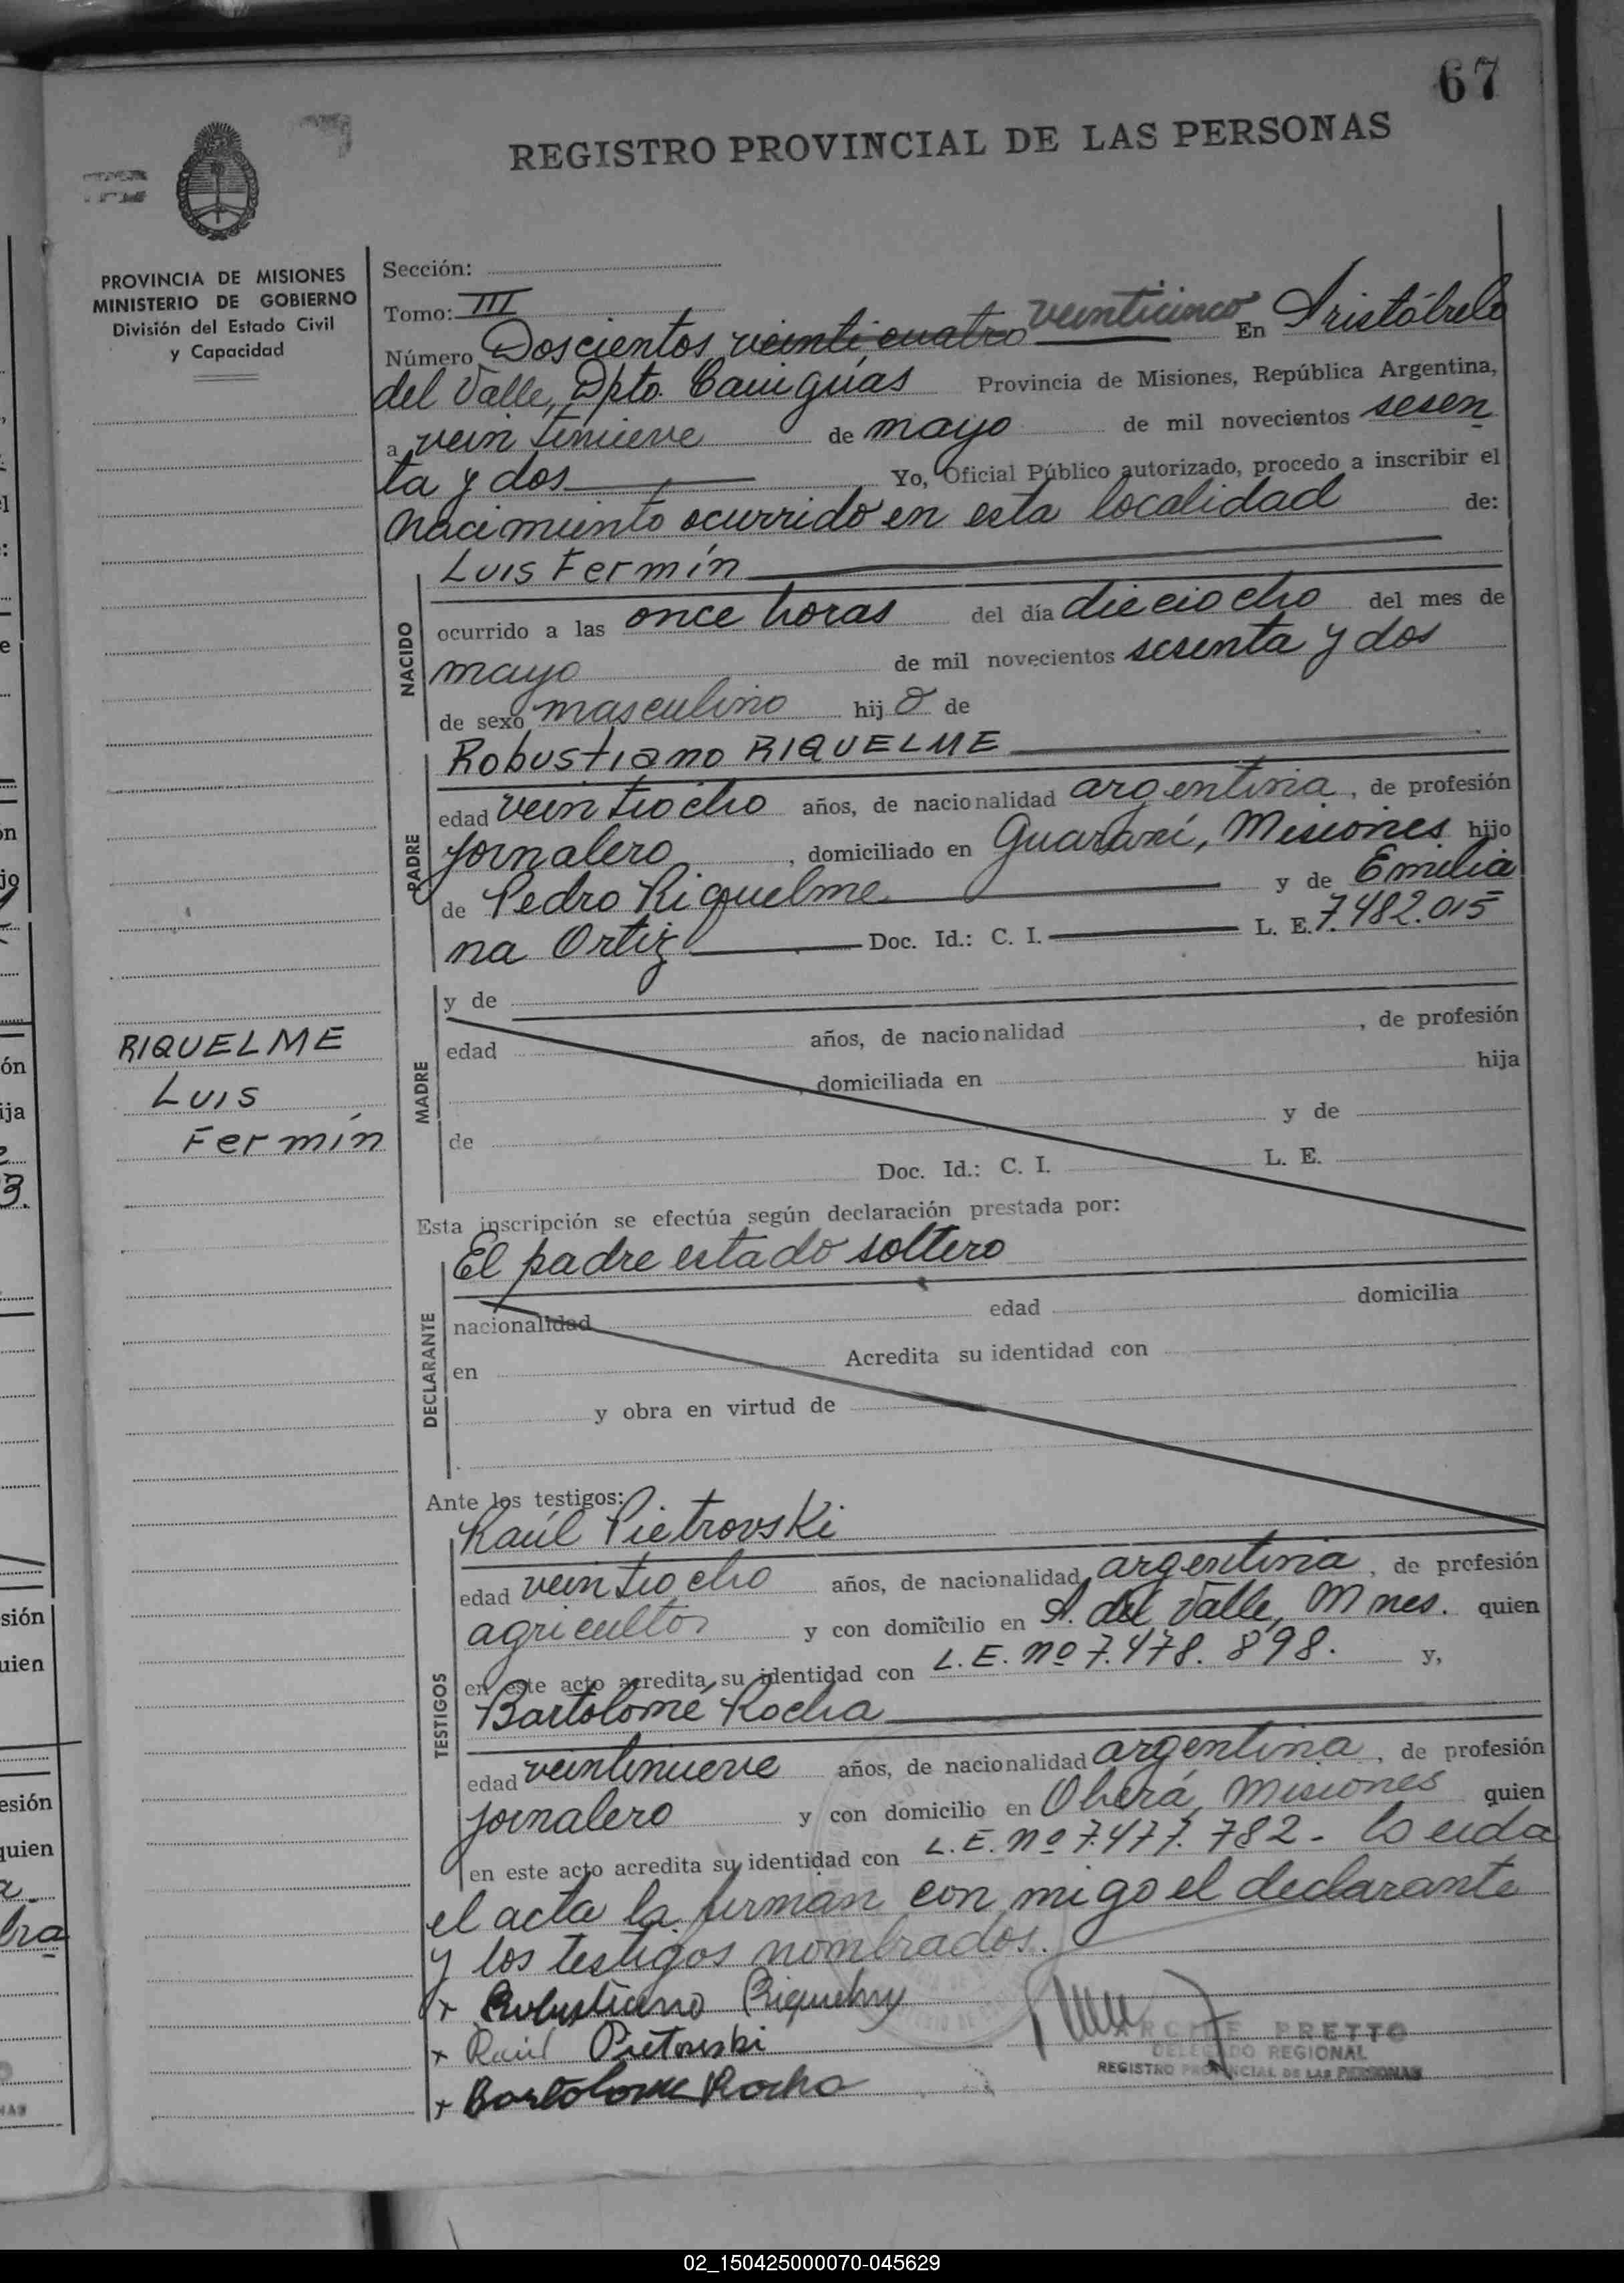 67
REGISTRO PROVINCIAL DE LAS PERSONAS
PROVINCIA DE MISIONES
MINISTERIO DE GOBIERNO
División del Estado Civil
y Capacidad
Sección:
Tomo: III
Número Doscientos veinticuatro veinticinco En Aristóbulo
del Valle, Dpto. Cainguás Provincia de Misiones, República Argentina,
a veintinueve de mayo de mil novecientos sesen
ta y dos Yo, Oficial Público autorizado, procedo a inscribir el
nacimiento ocurrido en esta localidad de:
NACIDO
Luis Fermín
ocurrido a las once horas del día dieciocho del mes de
mayo de mil novecientos sesenta y dos
de sexo masculino hij o de
PADRE
Robustiano RIQUELME
edad veintiocho años, de nacionalidad argentina, de profesión
jornalero, domiciliado en Guaraní, Misiones hijo
de Pedro Riquelme y de Emilia
na Ortiz Doc. Id.: C. I. L. E. 7.482.015
RIQUELME
Luis
Fermín
MADRE
y de
edad años, de nacionalidad , de profesión
, domiciliada en hija
de y de
Doc. Id.: C. I. L. E.
Esta inscripción se efectúa según declaración prestada por:
DECLARANTE
El padre estado soltero
nacionalidad edad domicilia
en Acredita su identidad con
y obra en virtud de
Ante los testigos:
TESTIGOS
Raúl Pietrovski
edad veintiocho años, de nacionalidad argentina, de profesión
agricultor y con domicilio en A. del Valle, Mnes. quien
en este acto acredita su identidad con L.E. nº 7.478.898. y,
Bartolomé Rocha
edad veintinueve años, de nacionalidad argentina, de profesión
jornalero y con domicilio en Oberá, Misiones quien
en este acto acredita su identidad con L.E. nº 7.477.782.-
el acta la firman con migo el declarante
y los testigos nombrados.
x Robustiano Riquelme
x Raúl Pietrouski
x Bartolome Rocha
PRETTO
DELEGADO REGIONAL
REGISTRO PROVINCIAL DE LAS PERSONAS
02_150425000070-045629